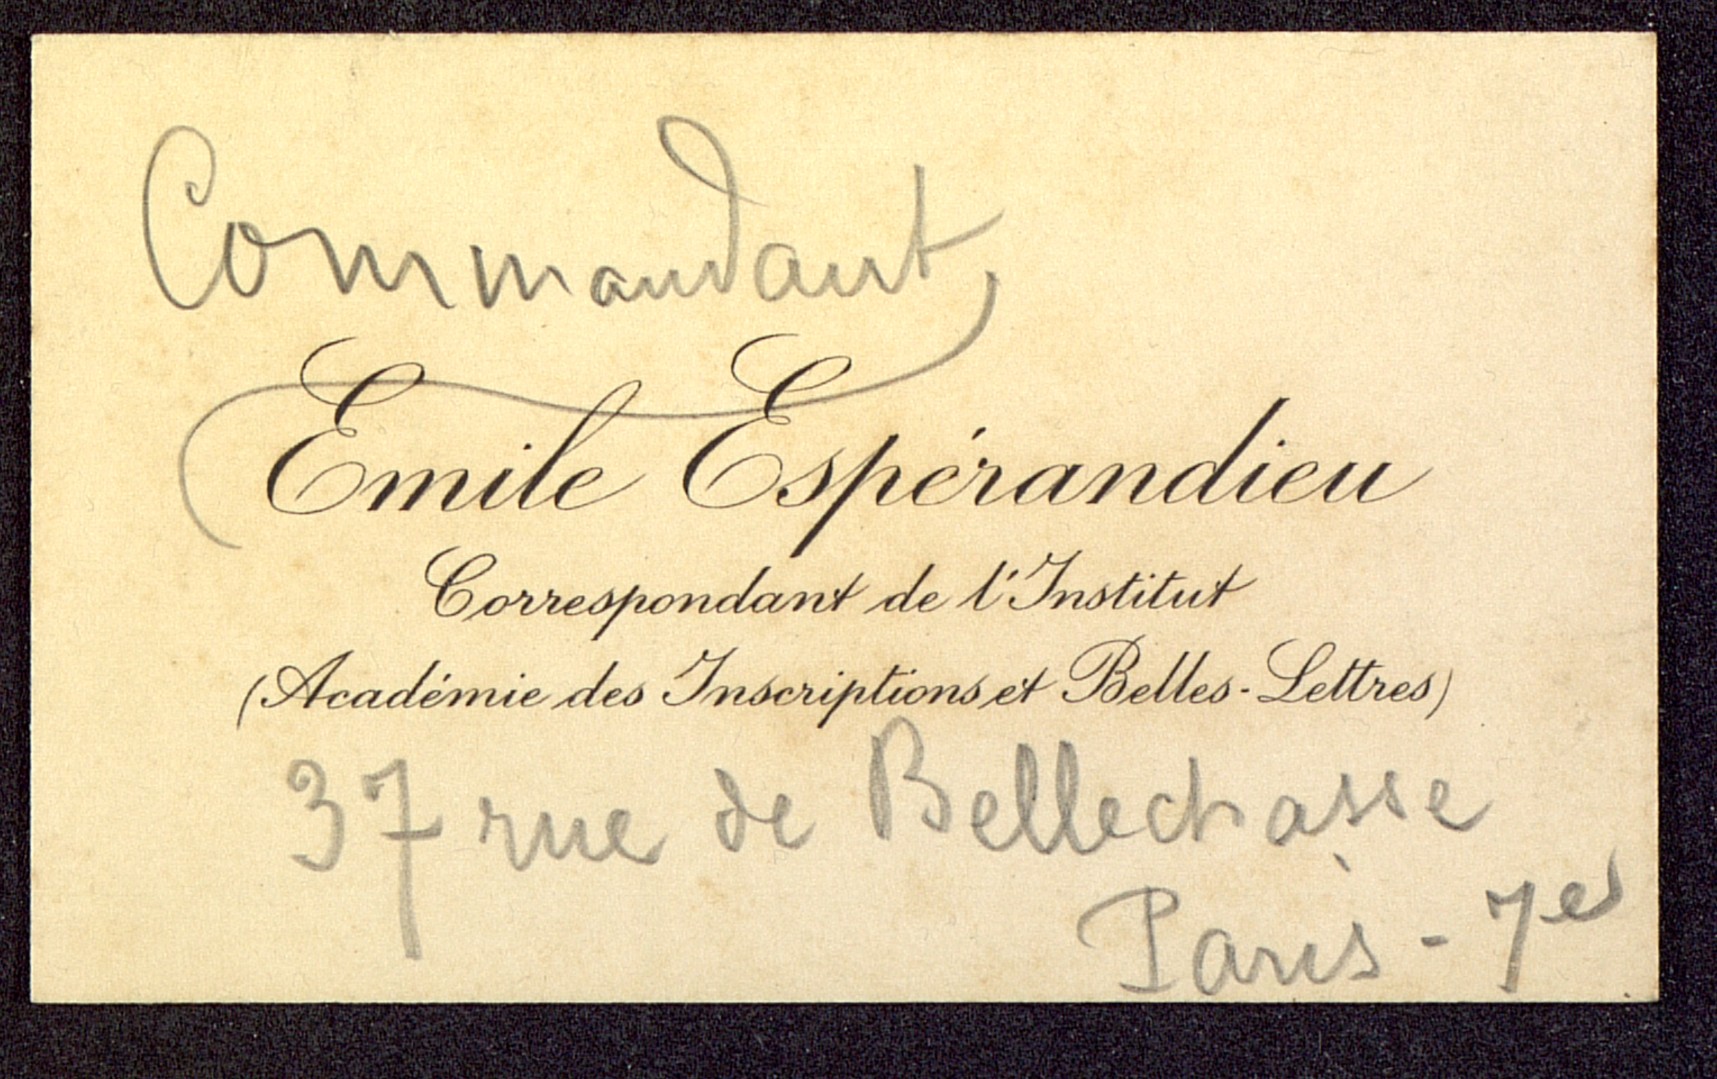 Commandant
Emile Espérandieu
Correspondant de l'Institut
(Académie des Inscriptions et Belles-Lettres)
37 rue de Bellechasse
Paris - 7e